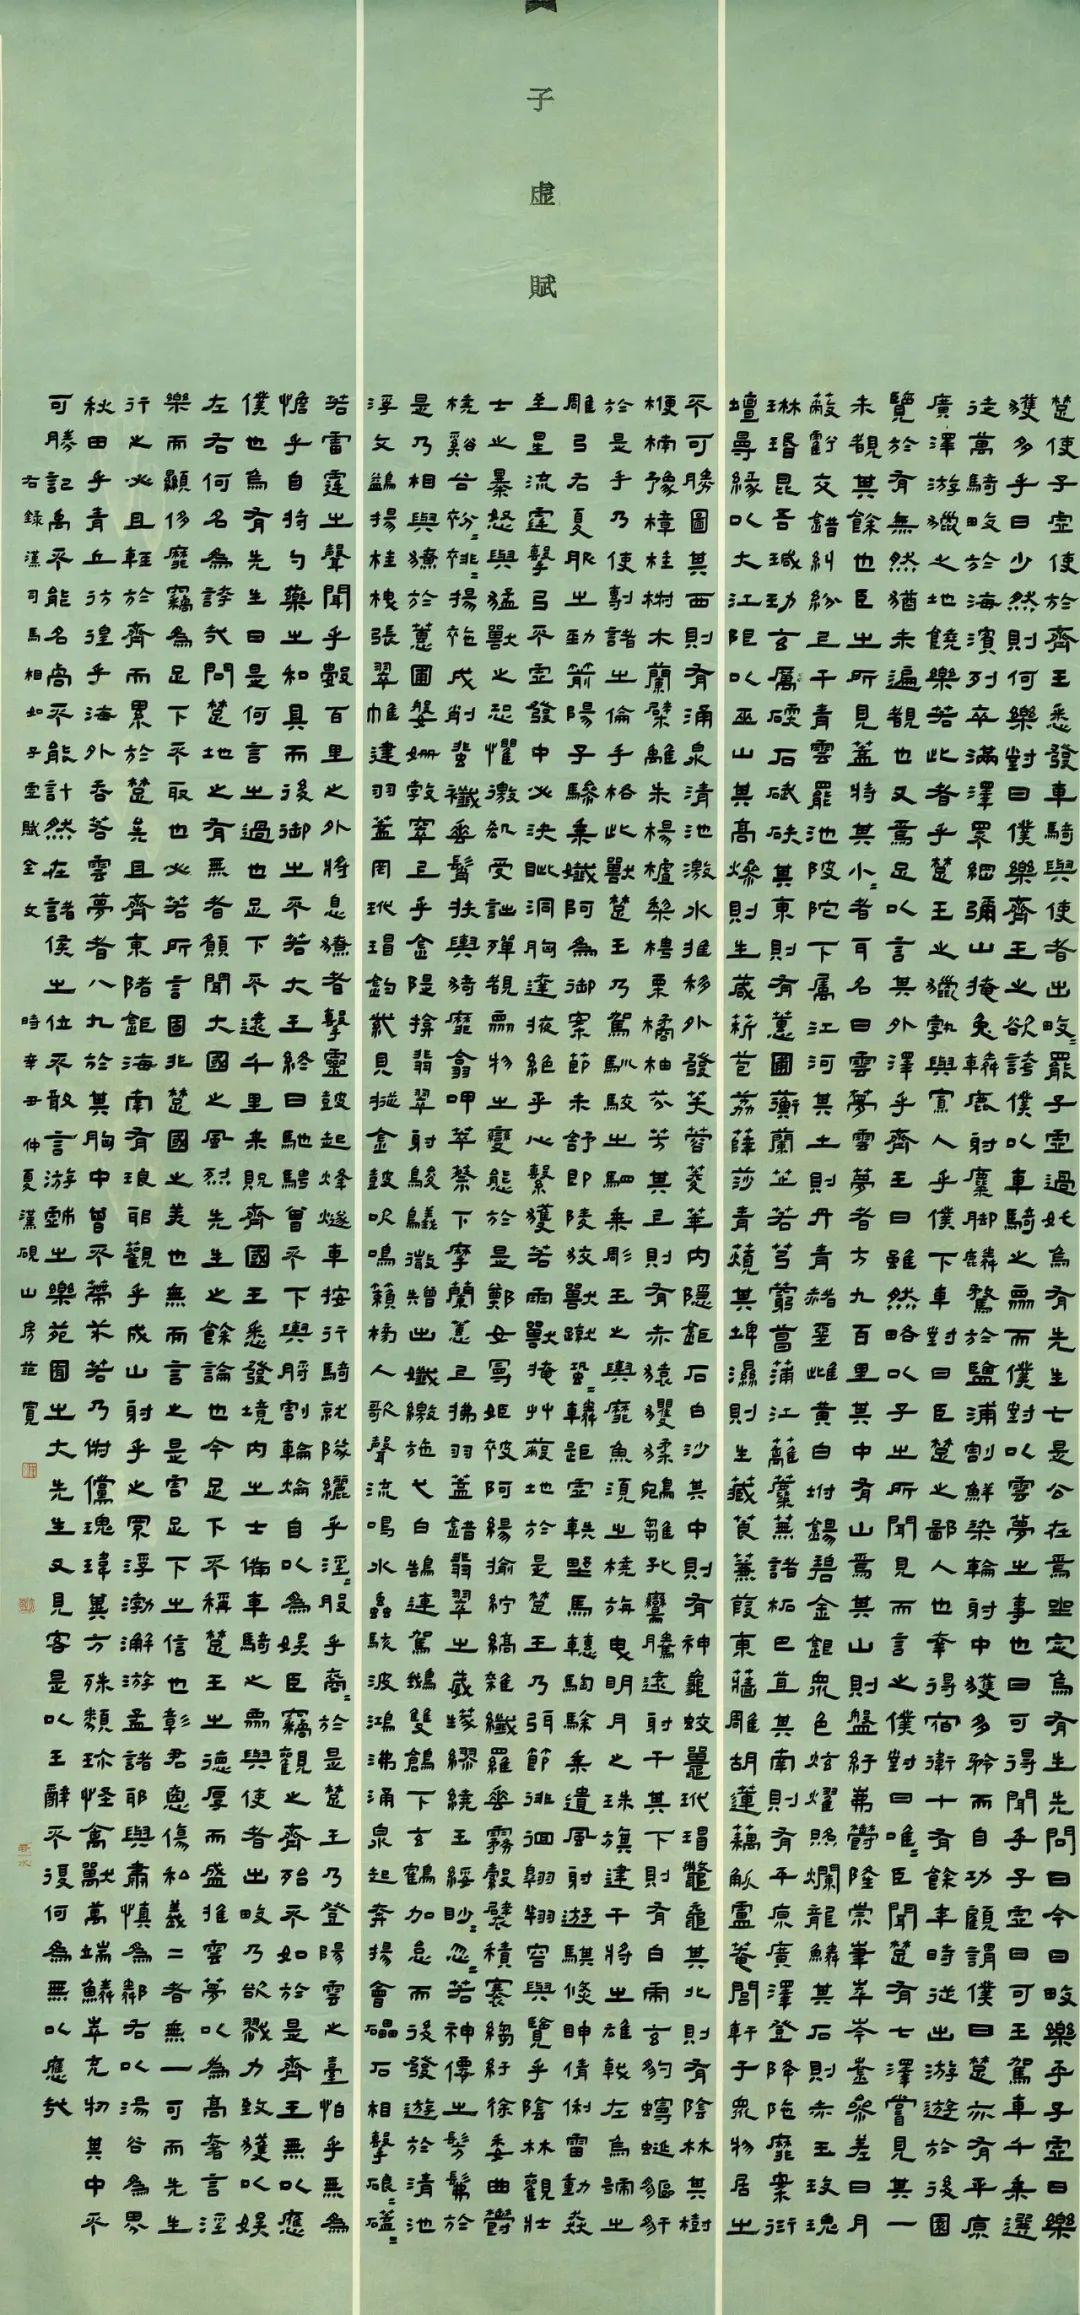 子虛賦
楚使子虛使於齊王悉發車騎與使者出畋=罷子虛過奼烏有先生亡是公在焉坐定烏有生先問曰今日畋樂乎子虛曰樂
獲多乎曰少然則何樂對曰僕樂齊王之欲誇僕以車騎之眾而僕對以雲夢之事也曰可得聞乎子虛曰可王駕車千乘選
徒萬騎畋於海濱列卒滿澤罘網彌山掩兔轔鹿射麋脚麟騖於鹽浦割鮮染輪射中獲多矜而自功顧謂僕曰楚亦有平原
廣澤游獵之地饒樂若此者乎楚王之獵孰與寡人乎僕下車對曰臣楚之鄙人也幸得宿衛十有餘年時從出游遊於後園
覽於有無然猶未遍覩也又焉足以言其外澤乎齊王曰雖然略以子之所聞見而言之僕對曰唯=臣聞楚有七澤嘗見其一
未覩其餘也臣之所見蓋特其小=者耳名曰雲夢雲夢者方九百里其中有山焉其山則盤紆岪鬱隆崇嵂崒岑崟參差日月
蔽虧交錯糾紛上干青雲罷池陂陀下屬江河其土則丹青赭堊雌黃白坿錫碧金銀眾色炫燿照爛龍鱗其石則赤玉玫瑰
琳瑉昆吾瑊玏玄厲碝石碔砆其東則有蕙圃蘅蘭芷若芎藭菖蒲江蘺蘪蕪諸柘巴苴其南則有平原廣澤登降阤靡案衍
壇曼緣以大江限以巫山其高燥則生葴菥苞荔薜莎青薠其埤濕則生藏莨蒹葭東蘠雕胡蓮藕觚盧菴閭軒于眾物居之
不可勝圖其西則有涌泉清池激水推移外發芙蓉菱華內隱鉅石白沙其中則有神龜蛟鼉玳瑁鼈黿其北則有陰林其樹
楩柟豫樟桂椒木蘭檗離朱楊樝梨梬栗橘柚芬芳其上則有赤猿玃猱鵷雛孔鸞騰遠射干其下則有白虎玄豹蟃蜒貙犴
於是乎乃使剸諸之倫手格此獸楚王乃駕馴駮之駟乘彫玉之輿靡魚須之橈旃曳明月之珠旗建干將之雄戟左烏號之
雕弓右夏服之勁箭陽子驂乘孅阿為御案節未舒即陵狡獸蹴蛩=轔距虛軼野馬轊騊駼乘遺風射遊騏倏眒倩浰雷動猋
至星流霆擊弓不虛發中必決眦洞胸達掖絕乎心繫獲若雨獸掩艸蔽地於是楚王乃弭節徘徊翱翔容與覽乎陰林觀壯
士之暴怒與猛獸之恐懼徼郤受詘殫覩眾物之變態於是鄭女曼姬被阿緆揄紵縞雜纖羅垂霧縠襞積褰縐紆徐委曲鬱
橈谿谷衯=裶=揚袘戌削蜚襳垂髾扶輿猗靡翕呷萃蔡下摩蘭蕙上拂羽蓋錯翡翠之葳蕤繆繞玉綏眇=忽=若神僊之髣髴於
是乃相與獠於蕙圃媻姍教窣上乎金隄揜翡翠射鵔鸃微矰出孅繳施弋白鵠連駕鵝雙鶬下玄鶴加怠而後發遊於清池
浮文鷁揚桂栧張翠帷建羽蓋罔玳瑁鈎紫貝摐金鼓吹鳴籟榜人歌聲流喝水蟲駭波鴻沸涌泉起奔揚會礧石相擊硠=礚=
若雷霆之聲聞乎數百里之外將息獠者擊靈鼓起烽燧車按行騎就隊纚乎淫=般乎裔=於是楚王乃登陽雲之臺怕乎無為
憺乎自持勺藥之和具而後御之不若大王終日馳騁曾不下輿脟割輪焠自以為娛臣竊觀之齊殆不如於是齊王無以應
僕也烏有先生曰是何言之過也足下不遠千里來貺齊國王悉發境內之士備車騎之眾與使者出畋乃欲戮力致獲以娛
左右何名為誇哉問楚地之有無者願聞大國之風烈先生之餘論也今足下不稱楚王之德厚而盛推雲夢以為高奢言淫
樂而顯侈靡竊為足下不取也必若所言固非楚國之美也無而言之是害足下之信也彰君惡傷私義二者無一可而先生
行之必且輕於齊而累於楚矣且齊東陼鉅海南有琅耶觀乎成山射乎之罘浮渤澥游孟諸耶與肅慎為鄰右以湯谷為界
秋田乎青丘彷徨乎海外吞若雲夢者八九於其胸中曾不蔕芥若乃俶儻瑰瑋異方殊類珍怪禽獸萬端鱗崒充物其中不
可勝記禹不能名卨不能計然在諸侯之位不敢言游戲之樂苑囿之大先生又見客是以王辭不復何為無以應哉
右錄漢司馬相如子虛賦全文時辛丑仲夏漢硯山房范寬